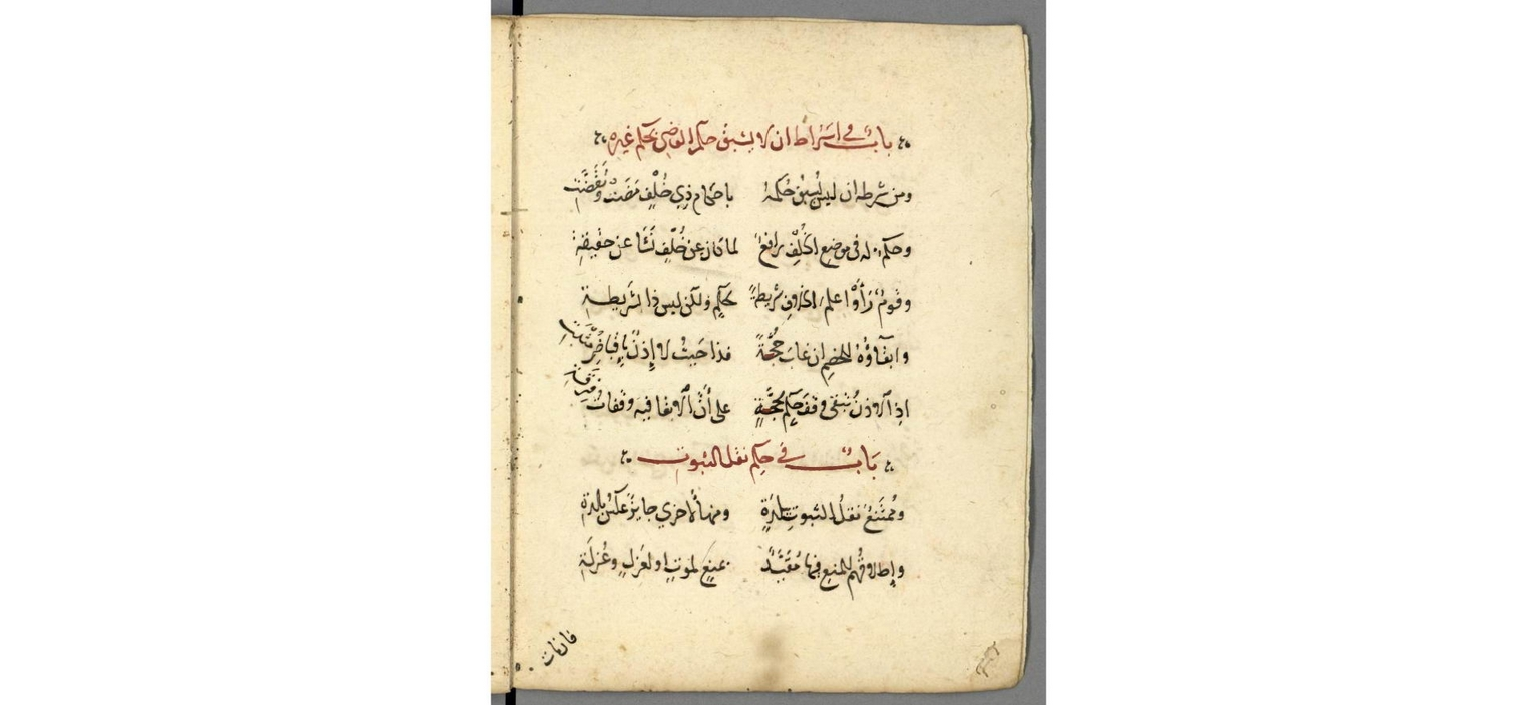 باب في اشتراط ان لا يسبق حكم القاضي بحكم غيره
ومن شرطه ان ليس يسبق حكمه باحكام ذي خلف مضت
وحكم له في موضع الخلف رافع لما كان عن خلف نشا عن حقيقة
وقوم رأوا علم الخلاف شريطة لحكم ولكن ليس ذا الشريطة
وابقاؤه للخصم ان غاب حجة فذا حيث لا إذن
اذ الاذن تبقى وقف حكم بحجة على أن الابقا فيه وقفات
باب في حكم نقل الثبوت
وممتنع نقل الثبوت ببلدة ومنها لأخرى جايز عكس بلدة
وإطلاقهم للمنع فيها مقيد بمنع لموت او لعزل وعزلة
فان مات